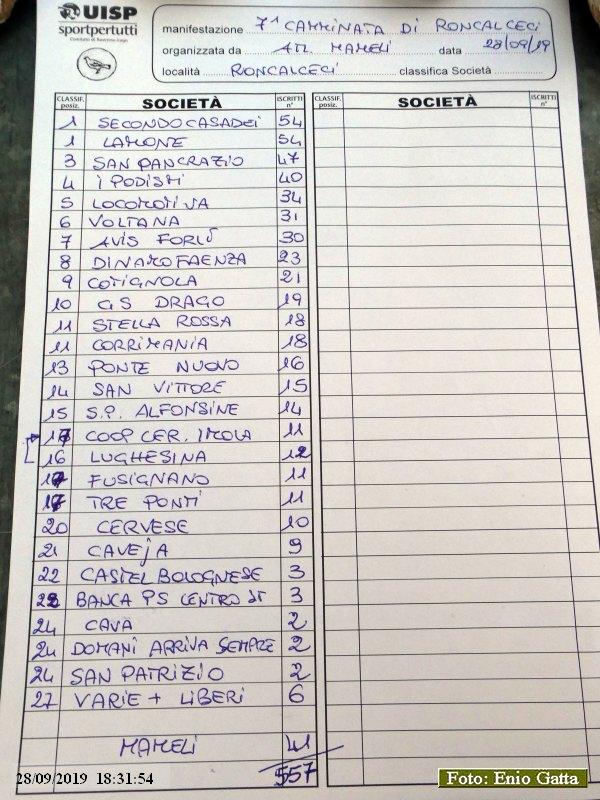 UISP
sportpertutti
Comitato di Ravenna-Lugo
manifestazione 7ª CAMMINATA DI RONCALCECI
organizzata da ATL. MAMELI data 28/09/19
località RONCALCECI classifica Società
CLASSIF. posiz. SOCIETÀ ISCRITTI n° CLASSIF. posiz. SOCIETÀ ISCRITTI n°
1 SECONDO CASADEI 54
1 LAMONE 54
3 SAN PANCRAZIO 47
4 I PODISTI 40
5 LOCOMOTIVA 34
6 VOLTANA 31
7 AVIS FORLÌ 30
8 DINAMO FAENZA 23
9 COTIGNOLA 21
10 GS DRAGO 19
11 STELLA ROSSA 18
11 CORRIMANIA 18
13 PONTE NUOVO 16
14 SAN VITTORE 15
15 S.P. ALFONSINE 14
17 COOP CER. IMOLA 11
16 LUGHESINA 12
17 FUSIGNANO 11
17 TRE PONTI 11
20 CERVESE 10
21 CAVEJA 9
22 CASTEL BOLOGNESE 3
22 BANCA PS CENTRO 3
24 CAVA 2
24 DOMANI ARRIVA SEMPRE 2
24 SAN PATRIZIO 2
27 VARIE + LIBERI 6
MAMELI 41
557
28/09/2019 18:31:54
Foto: Enio Gatta